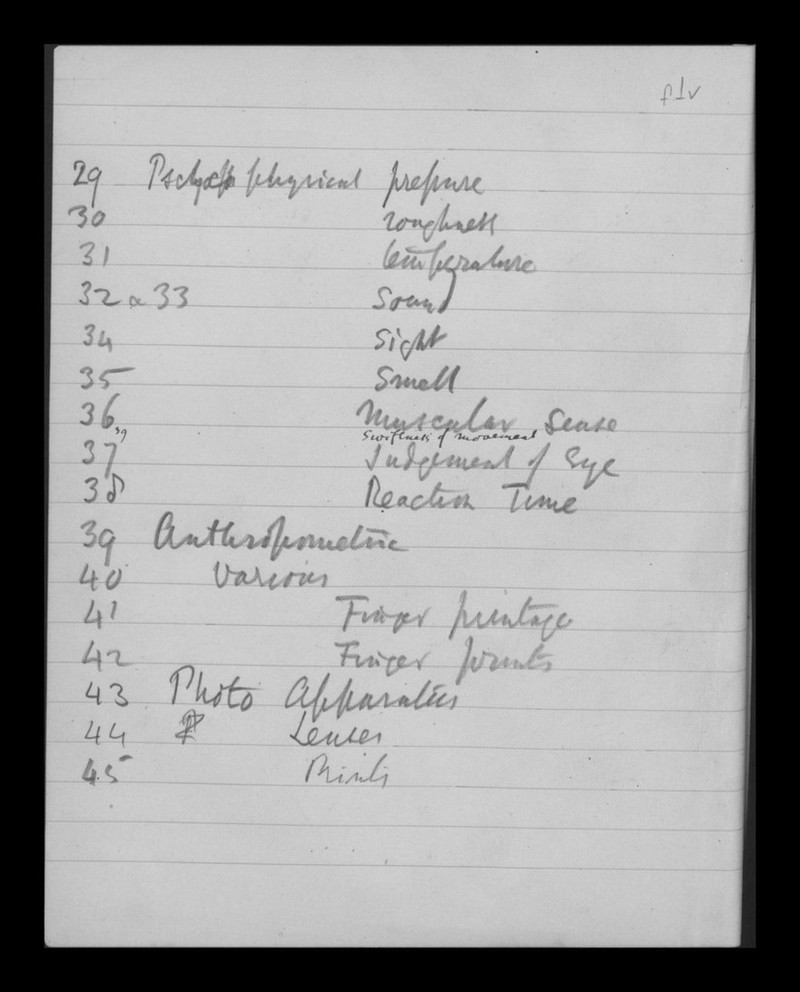 f1v
29 physical pressure
30 roughness
31 temperature
32 & 33 Sound
34 Sight
35 Smell
36 Muscular Sense
39 Swiftness of movement
37 Judgement of Eye
38 Reaction Time
39 Anthropometric
40 Various
41 Finger printage
42 Finger prints
43 Photo Apparatus
44 Lenses
45 Prints